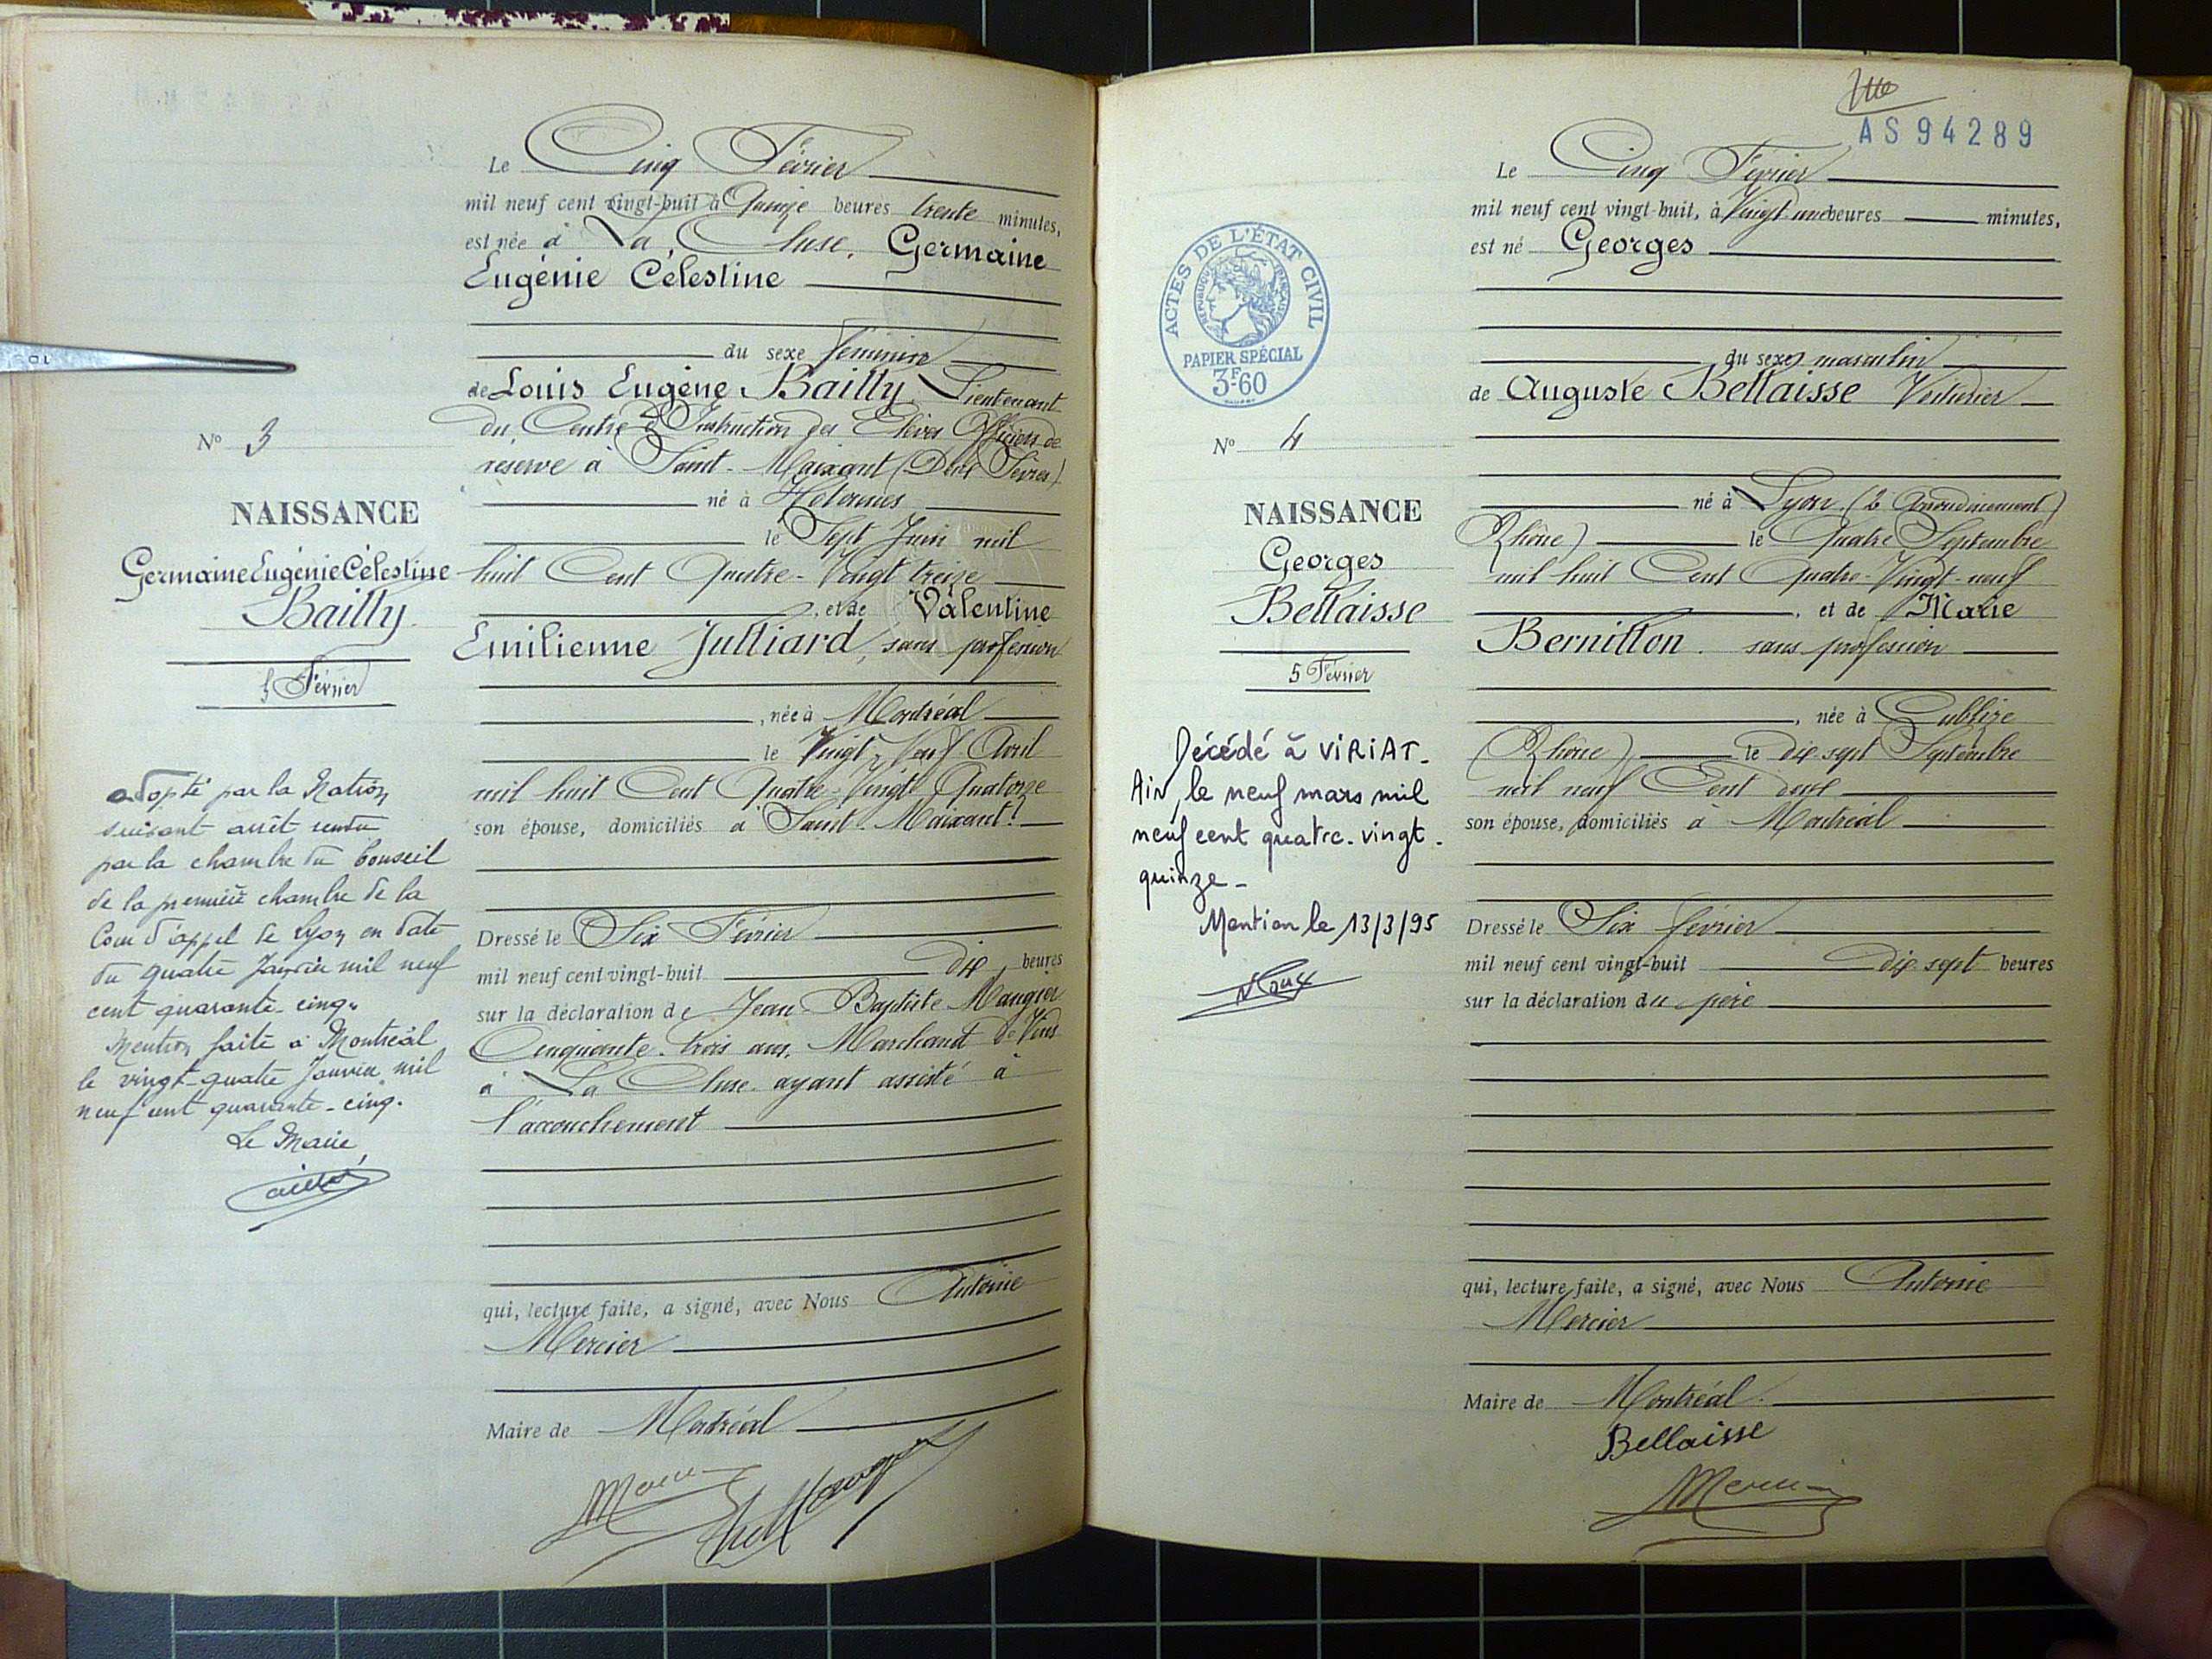 Le Cinq Février
mil neuf cent vingt-huit à Quinze heures trente minutes,
est née à La Cluse, Germaine
Eugénie Célestine
du sexe féminin
de Louis Eugène Bailly Lieutenant
du Centre d'Instruction des Elèves Officiers de
reserve à Saint-Maixant (Deux Sèvres)
né à Hotonnes
le Sept Juin mil
huit Cent Quatre-Vingt treize
, et de Valentine
Emilienne Julliard, sans profession
, née à Montréal
le Vingt-Neuf Avril
mil huit Cent Quatre-Vingt Quatorze
son épouse, domiciliés à Saint-Maixant
Dressé le Six Février
mil neuf cent vingt-huit dix heures
sur la déclaration de Jean Baptiste Maugier
Cinquante-trois ans, Marchand de Vins
à La Cluse ayant assisté à
l'accouchement
qui, lecture faite, a signé, avec Nous Antoine
Mercier
Maire de Montréal
No 3
NAISSANCE
Germaine Eugénie Célestine
Bailly
5 Février
adopté par la Nation
suivant arrêt rendu
par la chambre du Conseil
de la première chambre de la
Cour d'appel de Lyon en date
du quatre Janvier mil neuf
cent quarante-cinq.
Mention faite à Montréal
le vingt-quatre Janvier mil
neuf cent quarante-cinq.
Le Maire,
AS94289
Le Cinq Février
mil neuf cent vingt-huit, à Vingt une heures minutes,
est né Georges
du sexe masculin
de Auguste Bellaisse Voiturier
né à Lyon (2 Arrondissement)
Rhône) le Quatre Septembre
mil huit Cent Quatre-Vingt-neuf
, et de Marie
Bernillon sans profession
, née à Cublize
(Rhône) le dix sept Septembre
mil neuf Cent deux
son épouse, domiciliés à Montréal
Dressé le Six février
mil neuf cent vingt-huit dix sept heures
sur la déclaration du père
qui, lecture faite, a signé, avec Nous Antoine
Mercier
Maire de Montréal
Bellaisse
ACTES DE L'ÉTAT CIVIL
RÉPUBLIQUE FRANÇAISE
PAPIER SPÉCIAL
3F60
No 4
NAISSANCE
Georges
Bellaisse
5 Février
Décédé à VIRIAT-
Ain, le neuf mars mil
neuf cent quatre-vingt-
quinze-
Mention le 13/3/95